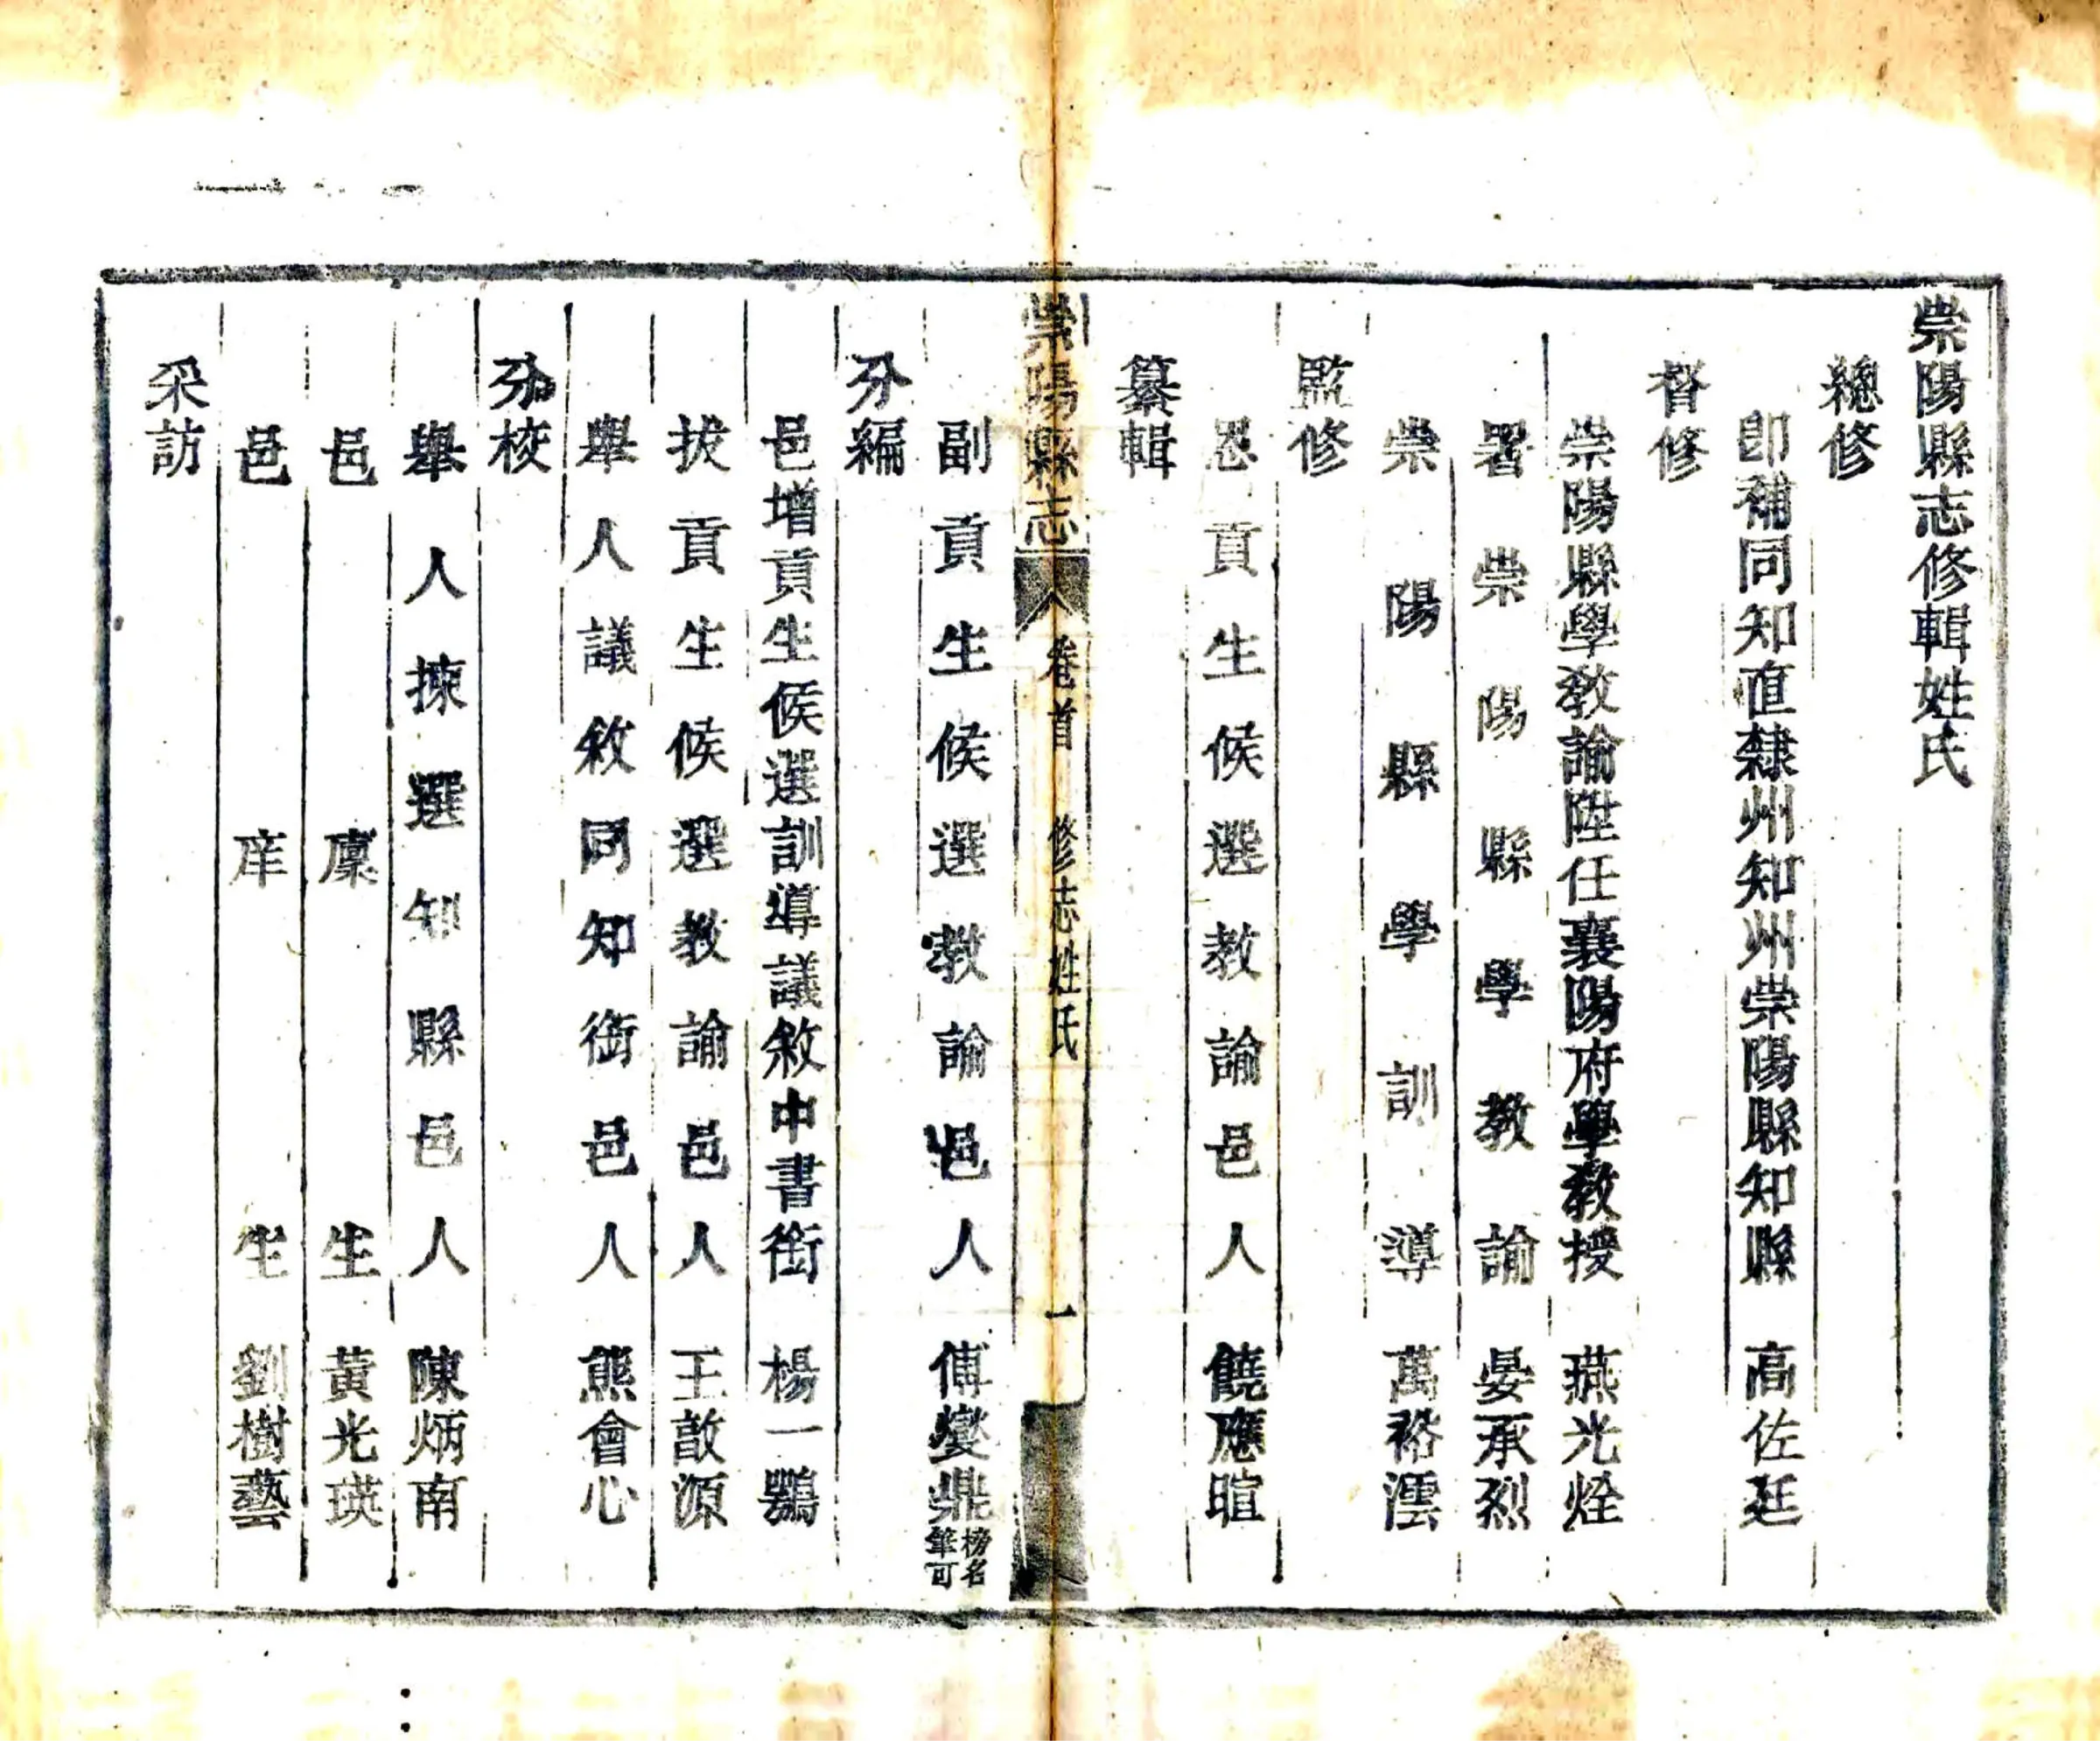 崇陽縣志修輯姓氏
總修
卽補同知直隸州知州崇陽縣知縣 高佐廷
督修
崇陽縣學教諭陞任襄陽府學教授 燕光烇
署崇陽縣學教諭 晏承烈
崇陽縣學訓導 萬裕澐
監修
恩貢生候選教諭邑人 饒應暄
纂輯
崇陽縣志 卷首 修志姓氏 一
副貢生候選教諭邑人 傅燮鼎 榜名
肇可
分編
邑增貢生候選訓導議敘中書銜 楊一鶚
拔貢生候選教諭邑人 王敳源
舉人議敘同知銜邑人 熊會心
分校
舉人揀選知縣邑人 陳炳南
邑廩生 黃光瑛
邑庠生 劉樹藝
采訪